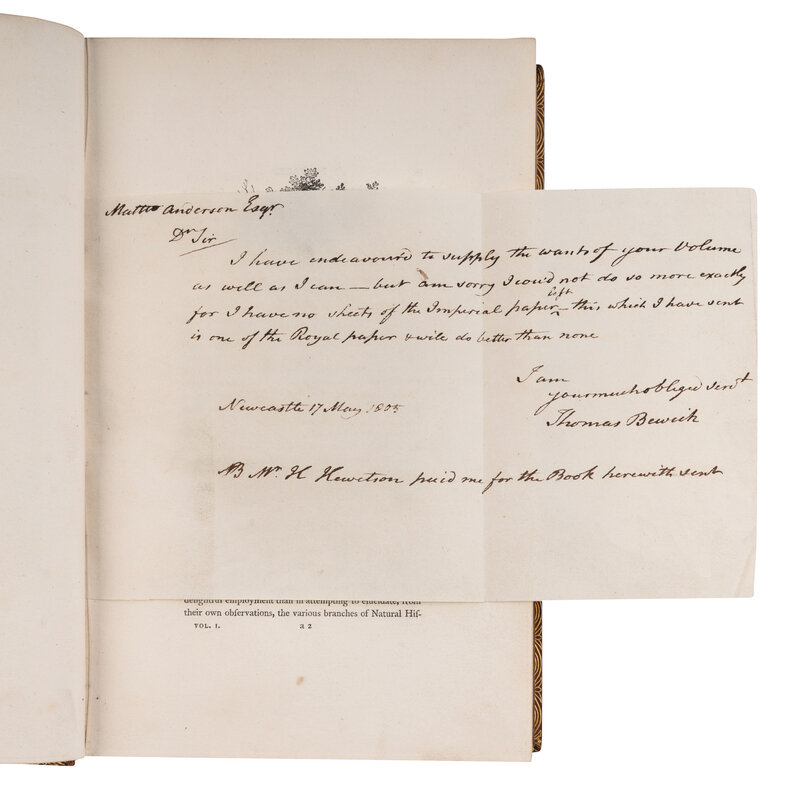 Mattw Anderson Esqr.
Dr Sir
I have endeavoured to supply the wants of your Volume
as well as I can — but am sorry I coud not do so more exactly
left
for I have no sheets of the Imperial paper ^ this which I have sent
is one of the Royal paper & will do better than none
I am
your much obliged servt
Thomas Bewick
Newcastle 17 May 1805
NB Mr. H Hewetson paid me for the Book herewith sent
delightful employment than in attempting to elucidate, from
their own obſervations, the various branches of Natural Hiſ-
VOL. I. a 2